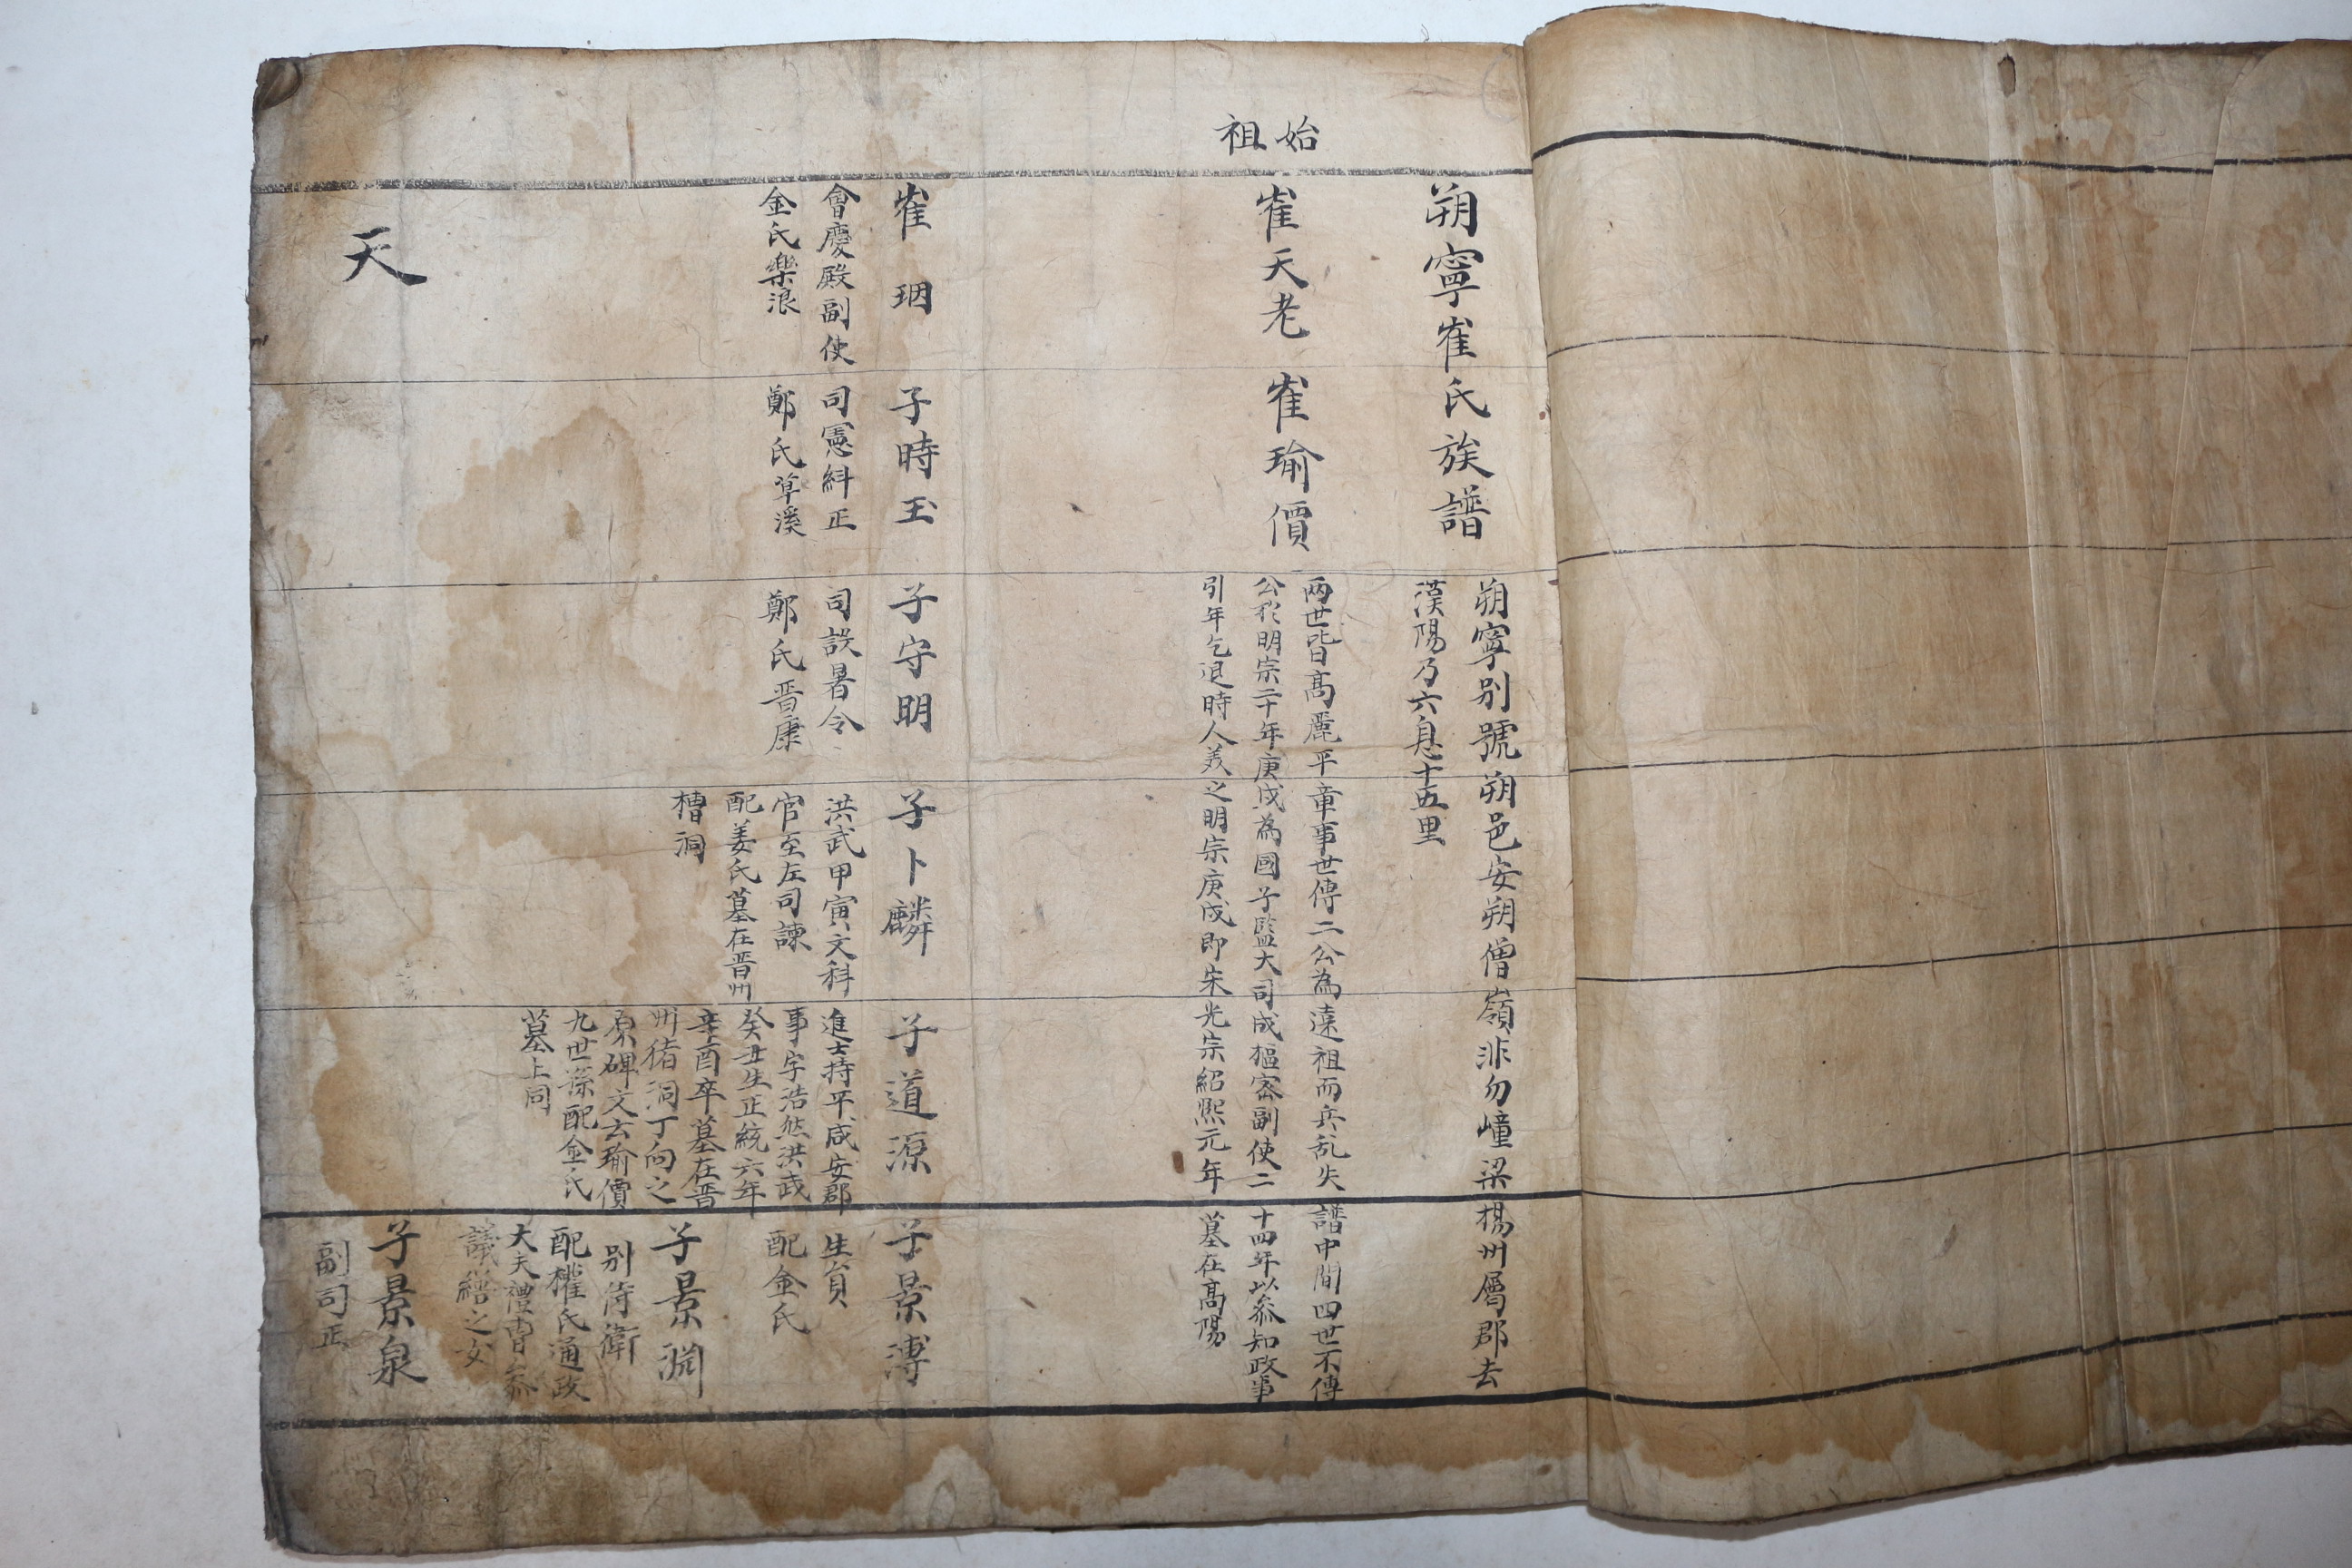 始祖
朔寧崔氏族譜
朔寧別號朔邑安朔僧嶺非勿㠉梁楊州屬郡去
漢陽乃六息十五里
崔天老
崔瑜價
兩世皆高麗平章事世傳二公為遠祖而兵乱失譜中間四世不傳
公於明宗二十年庚戌為國子監大司成樞密副使二十四年以叅知政事
引年乞退時人美之明宗庚戌即宋光宗紹熙元年墓在高陽
崔珚
會慶殿副使
金氏樂浪
子時玉
司憲糾正
鄭氏草溪
子守明
司設署令
鄭氏晋康
子卜麟
洪武甲寅文科
官至左司諫
配姜氏墓在晋州
槽洞
子道源
進士持平咸安郡
事字浩然洪武
癸丑生正統六年
辛酉卒墓在晋
州猪洞丁向之
原碑文云瑜價
九世孫配金氏
墓上同
子景溥
生員
配金氏
子景淵
別侍衛
配權氏通政
大夫禮曹叅
議繕之女
子景泉
副司正
天